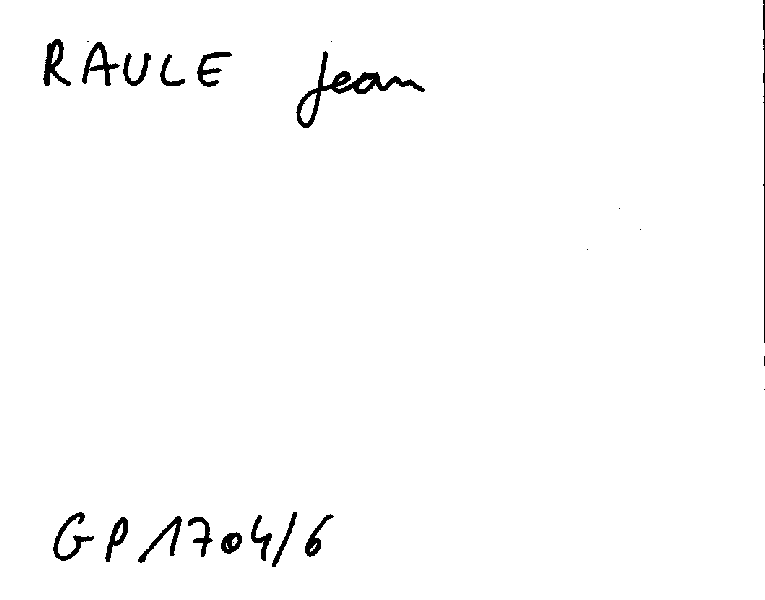 RAULE Jean
GP 1704/6